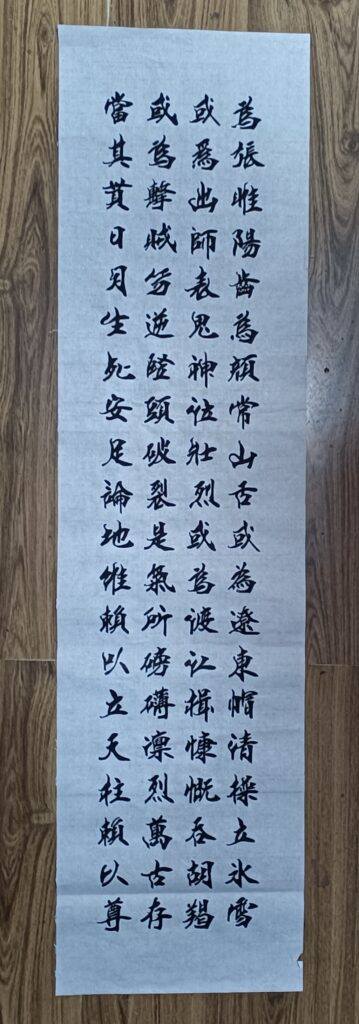 為張睢陽齒為顏常山舌或為遼東帽清操立氷雪
或為出師表鬼神泣壯烈或為渡江楫慷慨吞胡羯
或為擊賊笏逆豎頭破裂是氣所磅礴凛烈萬古存
當其貫日月生死安足論地維賴以立天柱賴以尊